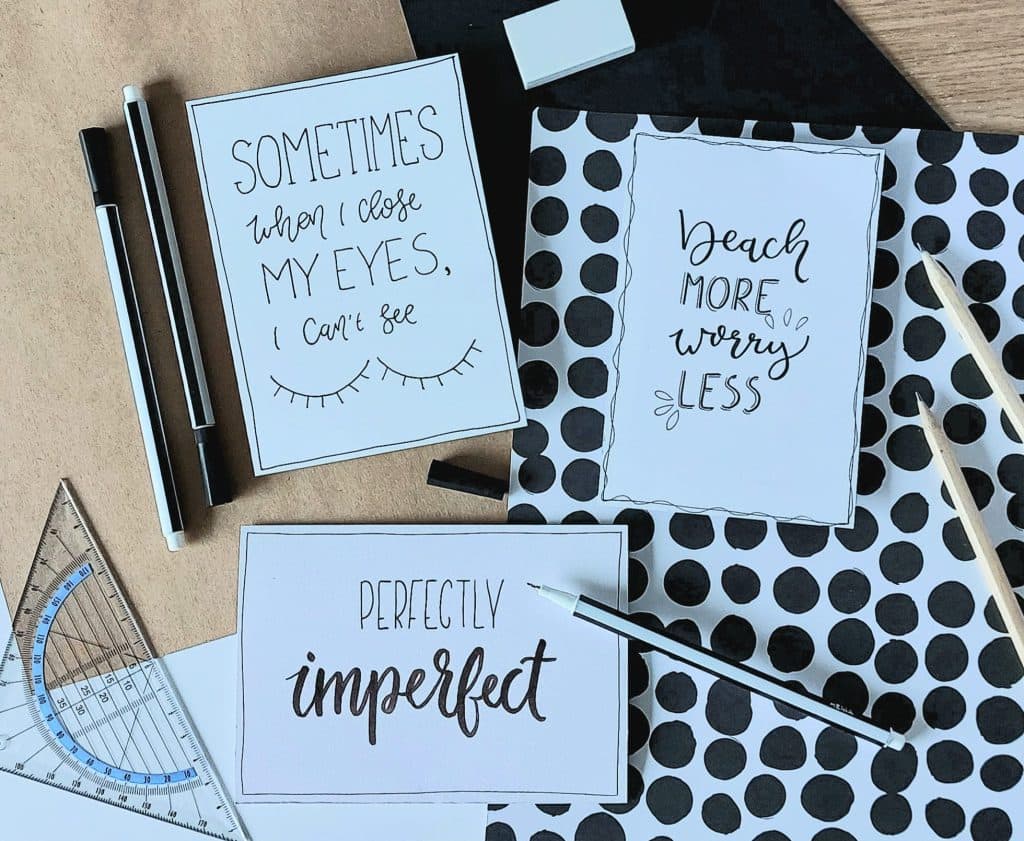 SOMETIMES
when I close
MY EYES,
I can't see
beach
MORE
worry
LESS
PERFECTLY
imperfect